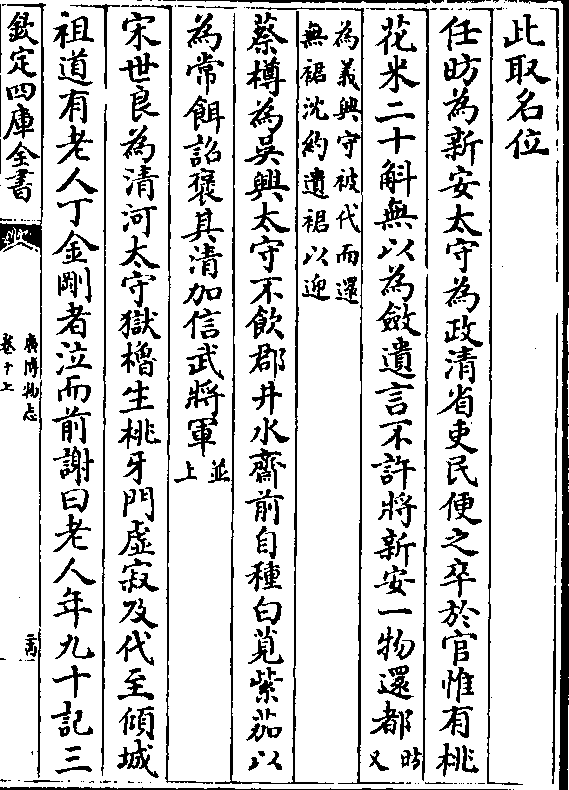 此取名位
任昉為新安太守為政清省吏民便之卒於官惟有桃
花米二十斛無以為斂遺言不許將新安一物還都昉又
為義興守被代而還
無裙沈約遺裙以迎
蔡樽為吳興太守不飲郡井水齋前自種白莧紫茄以
為常餌詔褒其清加信武將軍並上
宋世良為清河太守獄櫓生桃牙門虛寂及代至傾城
祖道有老人丁金剛者泣而前謝曰老人年九十記三
欽定四庫全書
廣博物志
卷十上